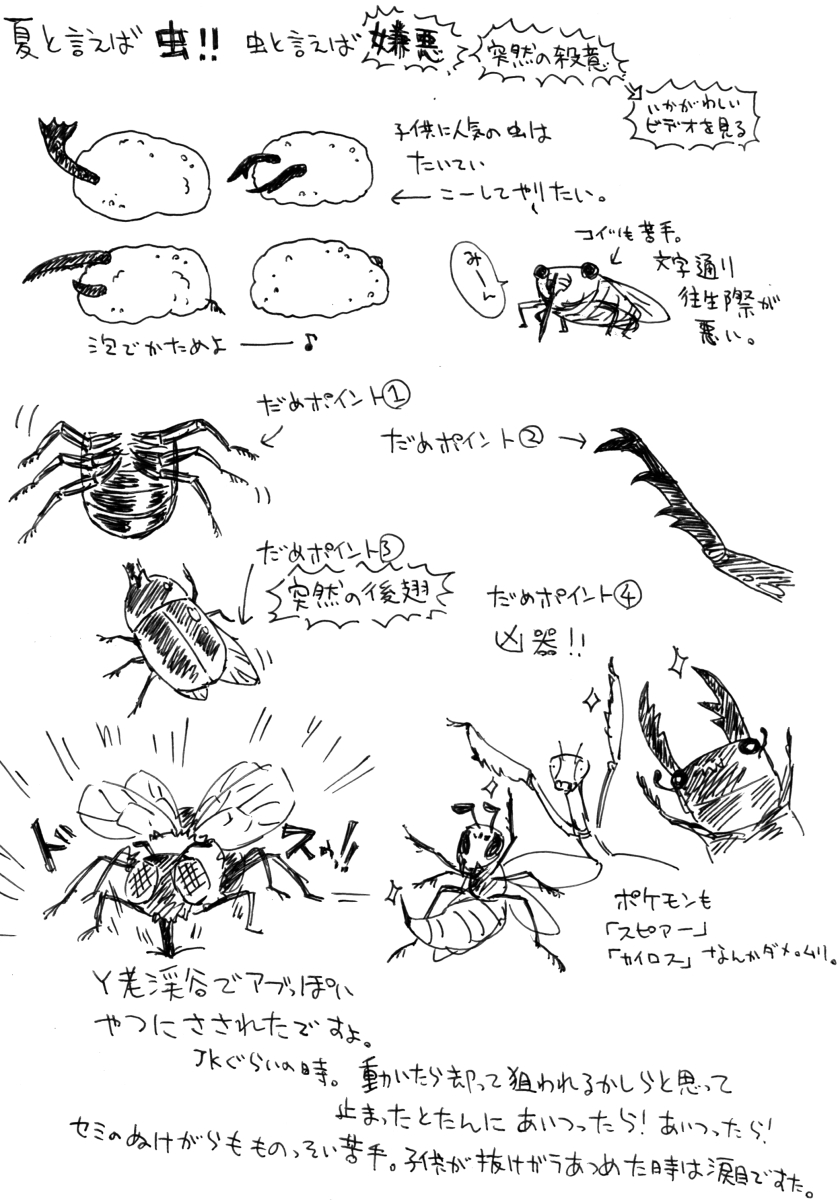 夏と言えば 虫!! 虫と言えば 嫌悪
突然の殺意
いかがわしい
ビデオを見る
子供に人気の虫は
たいてい
こーしてやりたい。
泡でかためよ ― ♪
みーん
コイツも苦手。
文字通り
往生際が
悪い。
だめポイント①
だめポイント②
だめポイント③
突然の後翅
だめポイント④
凶器!!
ドスッ!!
ポケモンも
「スピアー」
「カイロス」なんかダメ。ムリ。
Y老渓谷でアブっぽい
やつにさされたですよ。
JKぐらいの時。動いたら却って狙われるかしらと思って
止まったとたんに あいつったら! あいつったら!
セミのぬけがらもものっそい苦手。子供が抜けがらあつめた時は涙目ですた。